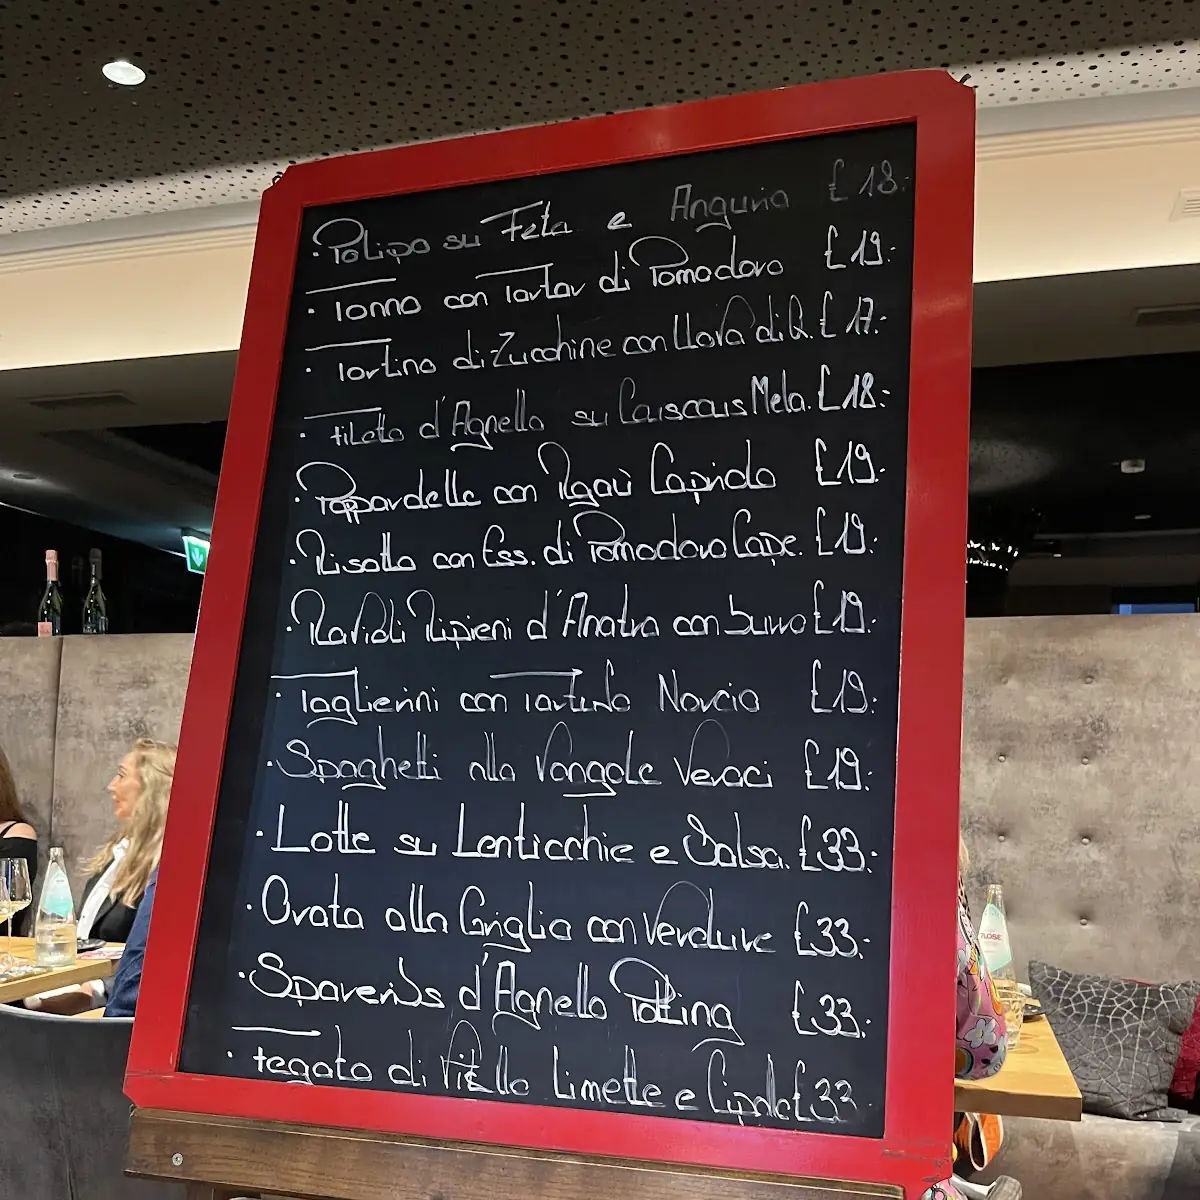 · Polipo su Feta e Anguria £ 18.-
· Tonno con Tartar di Pomodoro £ 19.-
· Tortino di Zucchine con Uova di Q. £ 17.-
· Filetto d'Agnello su Couscous Mela. £ 18.-
· Pappardelle con Ragù Capriolo £ 19.-
· Risotto con Ess. di Pomodoro Cape. £ 19.-
· Ravioli Ripieni d'Anatra con burro £ 19.-
· Taglierini con Tartufo Norcia £ 19.-
· Spaghetti alla Vongole Veraci £ 19.-
· Lotte su Lenticchie e Salsa. £ 33.-
· Orata alla Griglia con Verdure £ 33.-
· d'Agnello £ 33.-
· fegato di Vitello Limette e £ 33